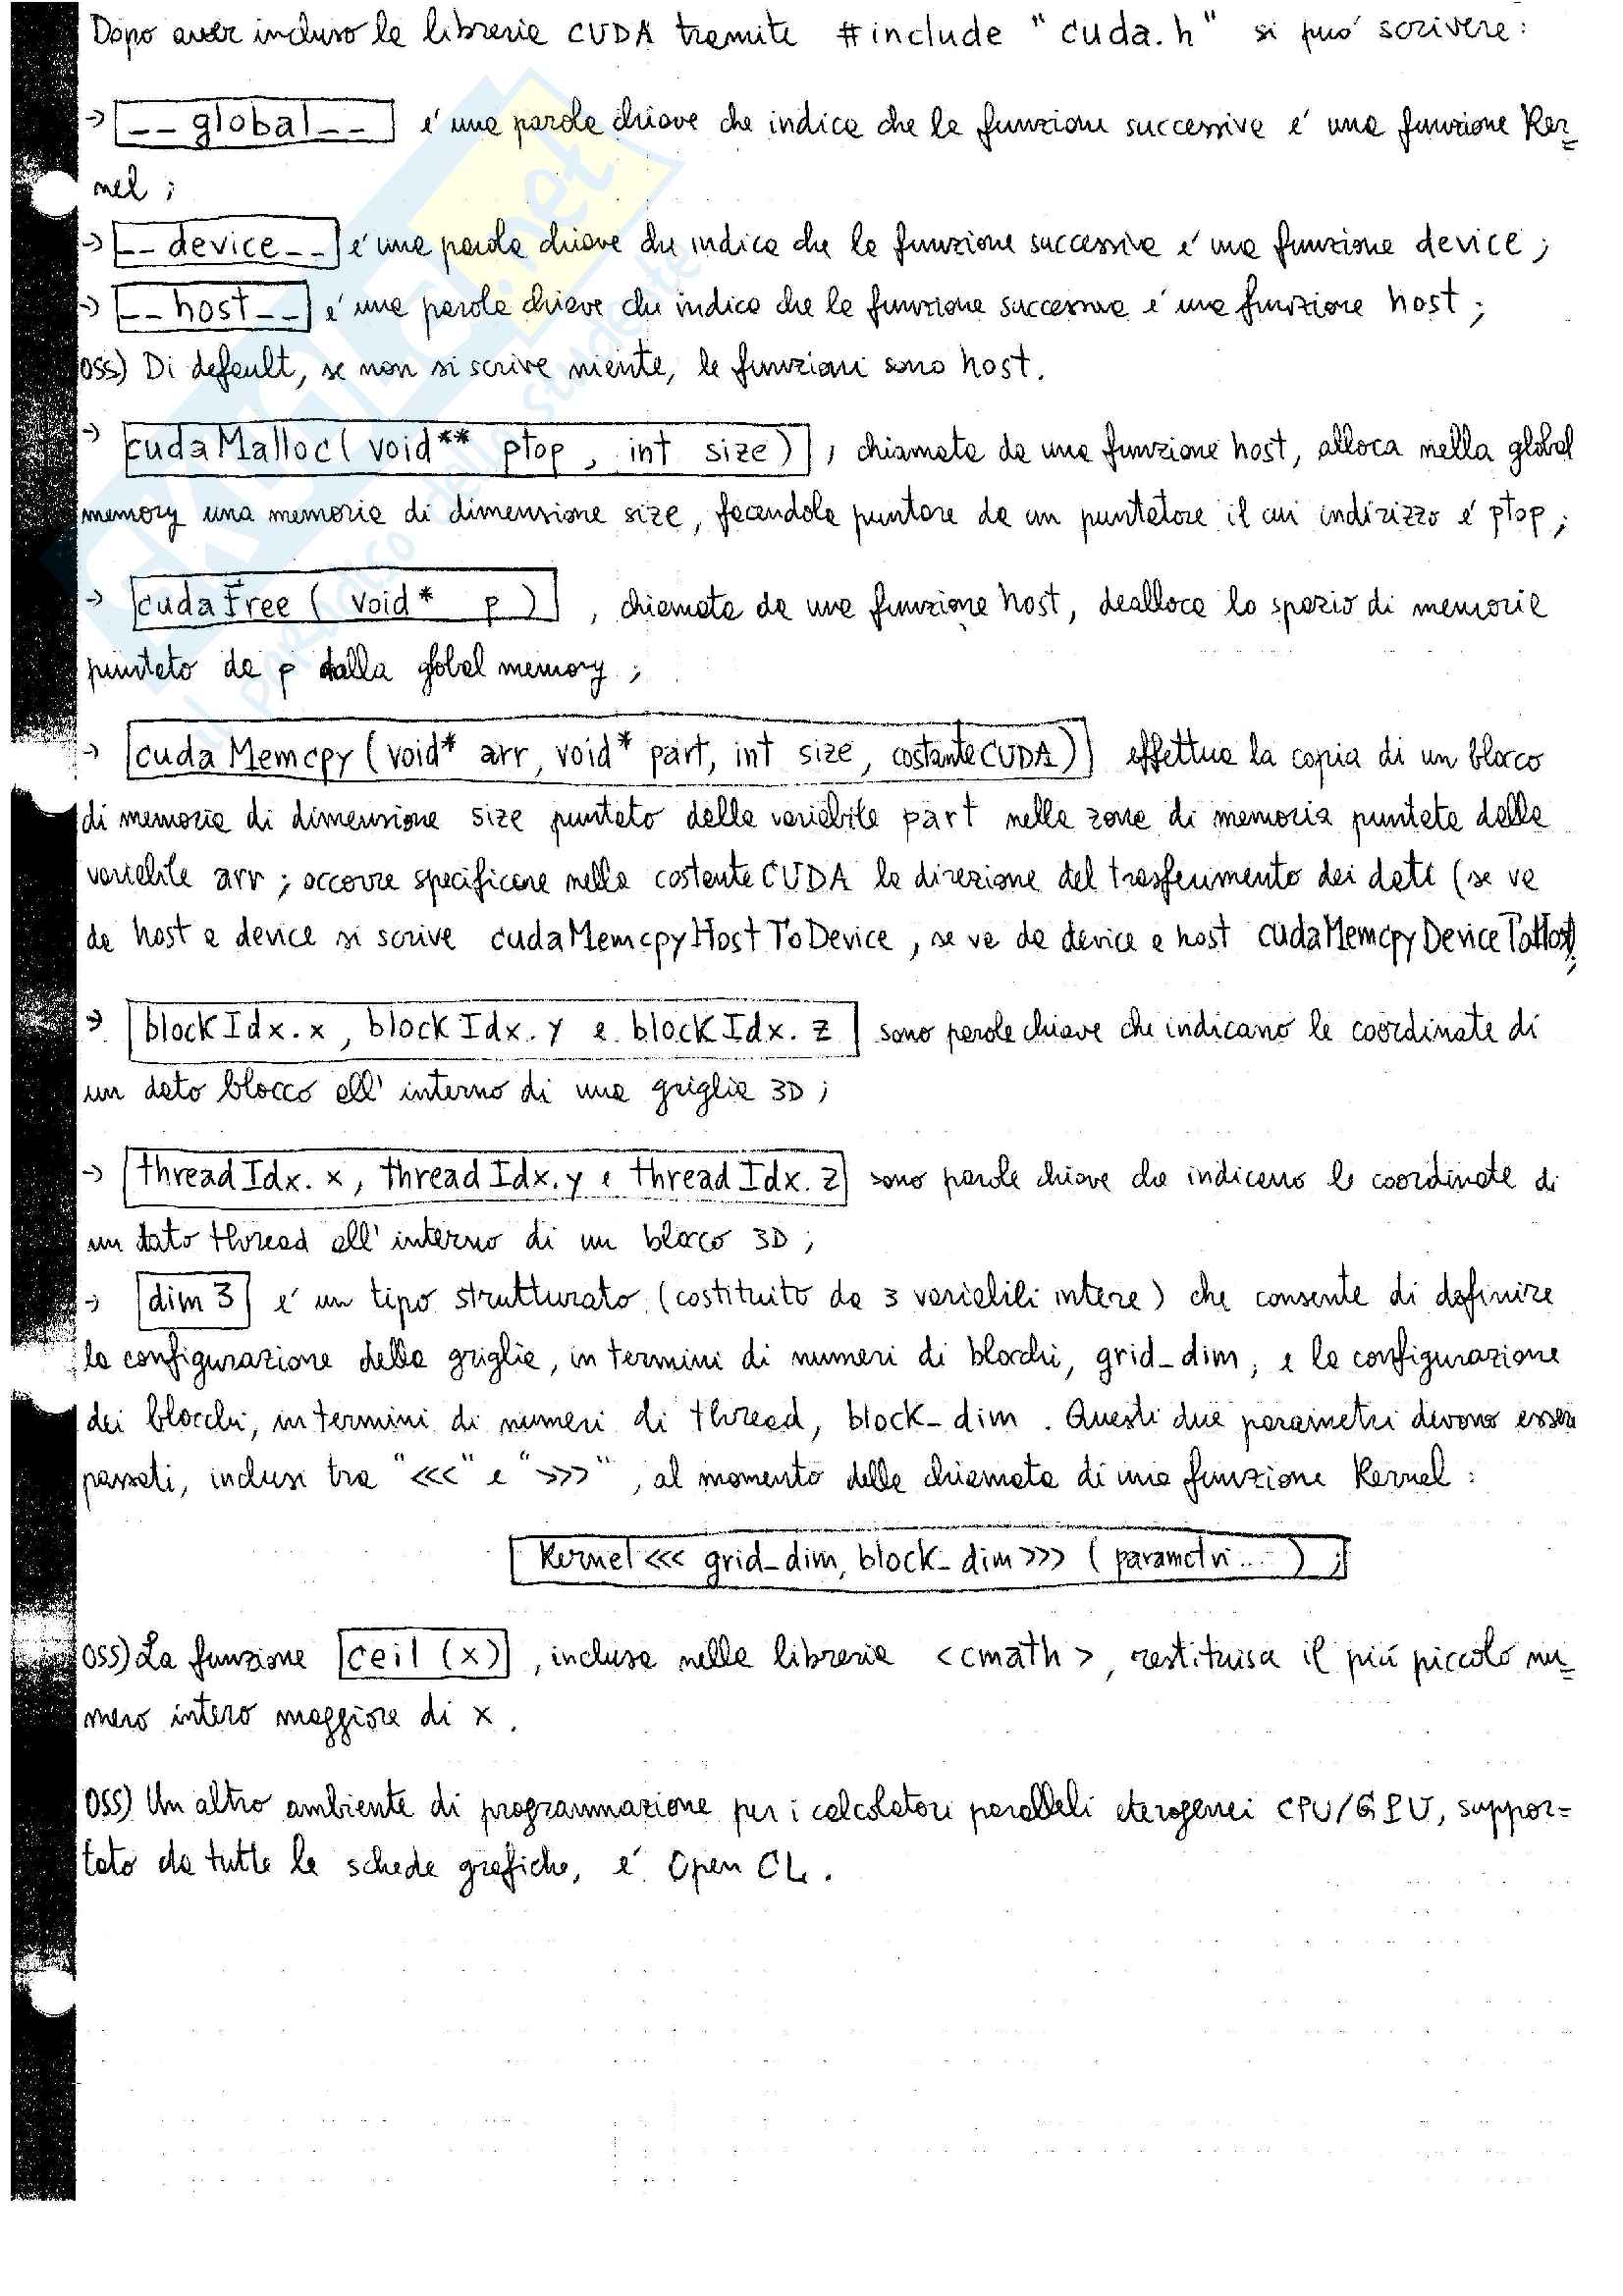 Dopo aver incluso la libreria CUDA tramite #include "cuda.h" si può scrivere:
→ __global__ é una parola chiave che indica che la funzione successiva é una funzione Ker=
nel;
→ __device__ é una parola chiave che indica che la funzione successiva é una funzione device;
→ __host__ é una parola chiave che indica che la funzione successiva é una funzione host;
OSS) Di default, se non si scrive niente, le funzioni sono host.
→ cudaMalloc( void** ptop, int size), chiamata da una funzione host, alloca nella global
memory una memoria di dimensione size, facendola puntare da un puntatore il cui indirizzo é ptop;
→ cudaFree ( void* p ), chiamata da una funzione host, dealloca lo spazio di memoria
puntato da p dalla global memory;
→ cudaMemcpy (void* arr, void* part, int size, costanteCUDA) effettua la copia di un blocco
di memoria di dimensione size puntato dalla variabile part nella zona di memoria puntata dalla
variabile arr; occorre specificare nella costante CUDA la direzione del trasferimento dei dati (se va
da host a device si scrive cudaMemcpyHostToDevice, se va da device a host cudaMemcpyDeviceToHost;
→ blockIdx.x, blockIdx.y e blockIdx.z sono parole chiave che indicano le coordinate di
un dato blocco all'interno di una griglia 3D;
→ threadIdx.x, threadIdx.y e threadIdx.z sono parole chiave che indicano le coordinate di
un dato thread all'interno di un blocco 3D;
→ dim3 é un tipo strutturato (costituito da 3 variabili intere) che consente di definire
la configurazione della griglia, in termini di numeri di blocchi, grid_dim, e la configurazione
dei blocchi, in termini di numeri di thread, block_dim. Questi due parametri devono esser
passati, inclusi tra "<<<" e ">>>", al momento della chiamata di una funzione Kernel:
Kernel <<< grid_dim, block_dim >>> ( parametri... );
OSS) La funzione ceil (x), inclusa nella libreria <cmath>, restituisce il piú piccolo nu=
mero intero maggiore di x.
OSS) Un altro ambiente di programmazione per i calcolatori paralleli eterogenei CPU/GPU, suppor=
tato da tutte le schede grafiche, é Open CL.